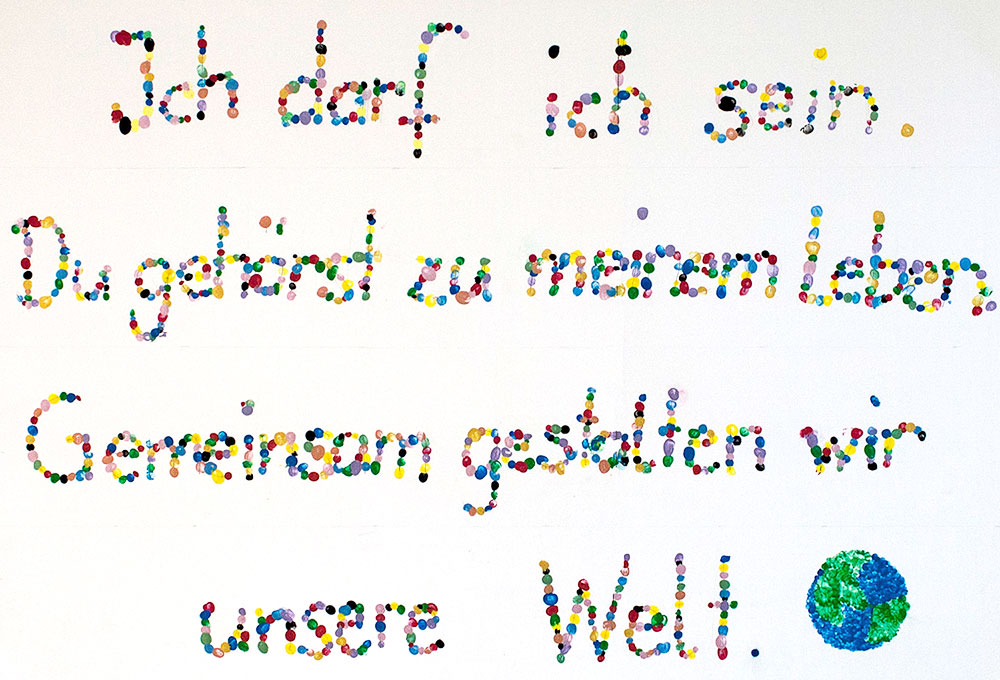 Ich darf ich sein.
Du gehörst zu meinem Leben.
Gemeinsam gestalten wir
unsere Welt.